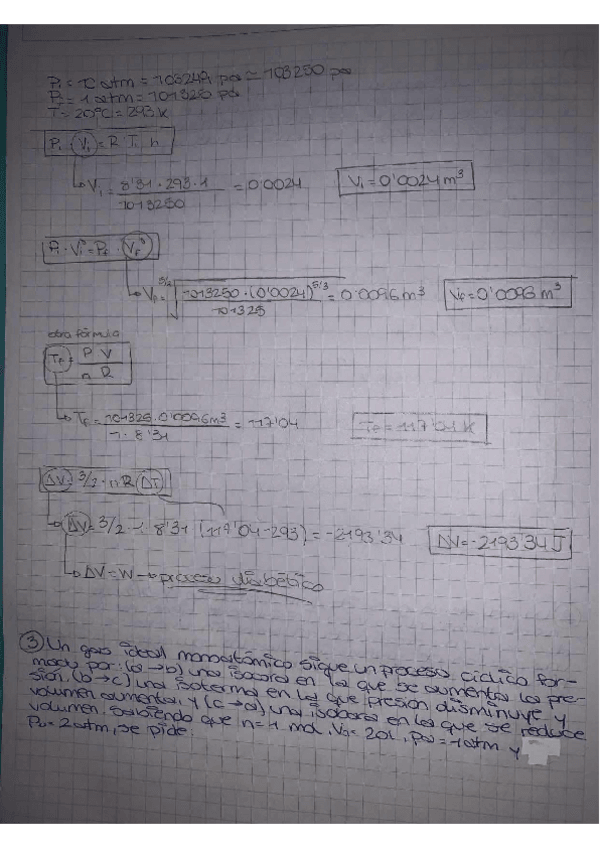 P₁ = 10 atm = 1013249 pa ≃ 1013250 pa
P₂ = 1 atm = 101325 pa
T = 20°C = 293 K
P₁ · V₁ = R T₁ n
V₁ = 8'31 · 293 · 1 / 1013250 = 0'0024
V₁ = 0'0024 m³
P₁ · V₁ = Pf · Vf
Vf = 5/3 √ 1013250 · (0'0024)^5/3 / 101325 = 0'0096 m³
Vf = 0'0093 m³
otra fórmula
Tf = P V / n R
Tf = 101325 · 0'0096 m³ / 1 · 8'31 = 117'04
Tf = 117'04 K
ΔV = 3/2 · n R ΔT
ΔV = 3/2 · 1 · 8'31 (117'04 - 293) = -2193'34
ΔV = -2193'34 J
ΔV = W → proceso
③ Un gas ideal monoatómico sigue un proceso cíclico for-
mado por: (a→b) una isocora en la que se aumenta la pre-
sión. (b→c) una isoterma en la que presión disminuye y
volumen aumenta. y (c→a) una isobara en la que se reduce
volumen. Sabiendo que n = 1 mol, Va = 20L, pa = 1 atm y
Pb = 2 atm, se pide: